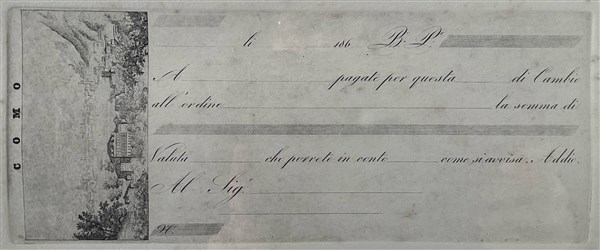 COMO
li 186 B. P.
A pagate per questa di Cambio
all'ordine la somma di
Valuta che porrete in conto come si avvisa. Addio.
Al Sig.
N.